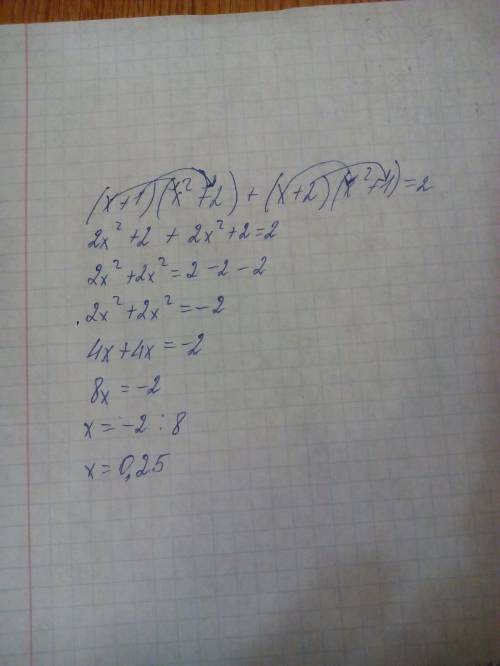 (x+1)(x²+2) + (x+2)(x²+1)=2
2x²+2 + 2x²+2=2
2x²+2x²=2-2-2
2x²+2x²=-2
4x+4x=-2
8x=-2
x=-2:8
x=0,25